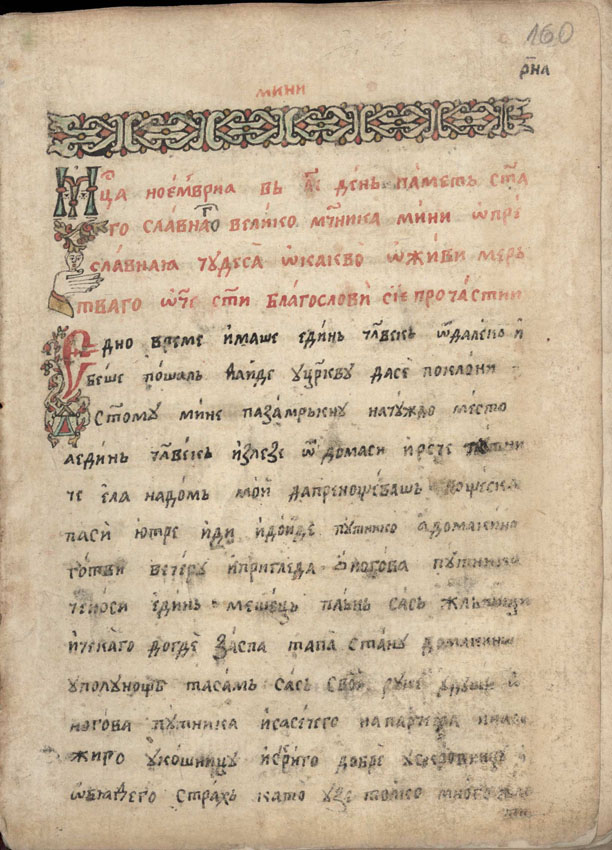 160
рн҃а
мини
Мц҃а ноемврїа въ аі день паметь ста
го славнаго велико мч҃ника мини ѡ прѣ
славнаю чудеса ѡ каквѡ ѡживи мер
тваго ѿче ст҃и благослови сїе прочастии
Едно време имаше единь чл҃векь ѿ далекь и
беше пошаль да иде у цр҃кву да се поклони
ст҃ому мине па замрькну на туждо место
а единь чл҃векь излезе ѿ дома си и рече
че ела на домь мои да пренощевашь
па си ютре иди и доиде путнико а домакинѡ
готви вечеру и пригледа у ногова путника
че носи единь мешець пльнь сась жльтици
и чекаго догде заспа тапа стану домакинѡ
у полунощь та самь сась свои руке удуши
ногова путника и сасечего на парчета
жиро у кошницу и скриго добре
ѡбиде его страхь като узе толко много